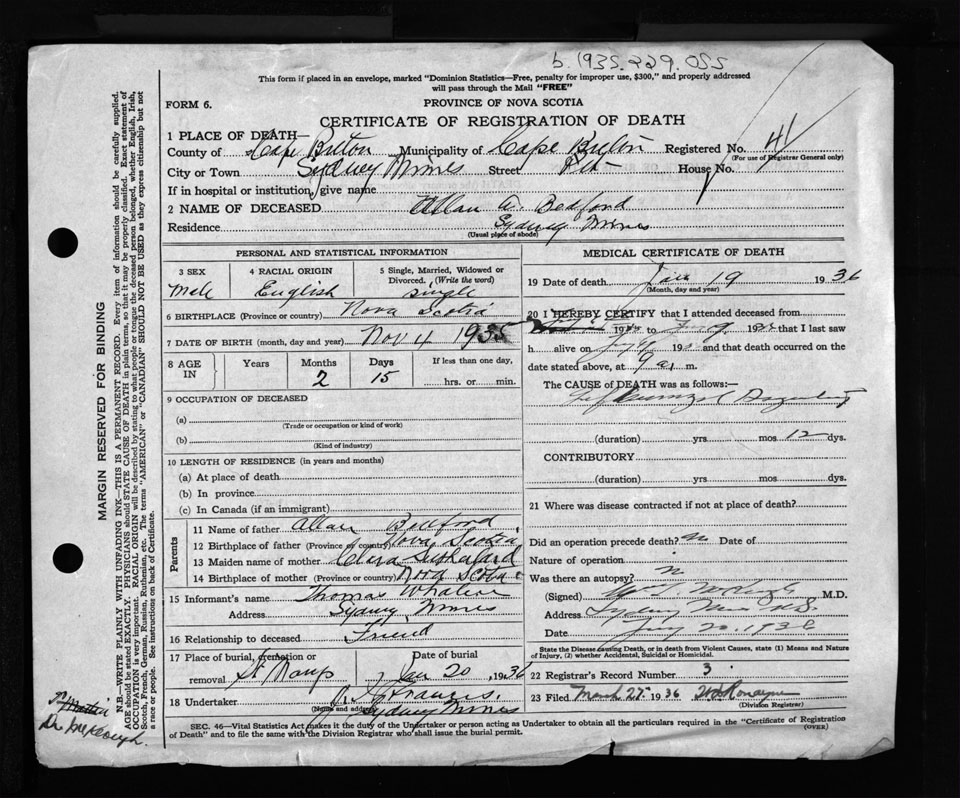 b. 1935.229.055
This form if placed in an envelope, marked "Dominion Statistics—Free, penalty for improper use, $300," and properly addressed
will pass through the Mail "FREE"
FORM 6.
PROVINCE OF NOVA SCOTIA
CERTIFICATE OF REGISTRATION OF DEATH
1 PLACE OF DEATH—
County of Cape Breton Municipality of Cape Breton Registered No. 41
(For use of Registrar General only)
City or Town Sydney Mines Street Pitt House No.
If in hospital or institution, give name
2 NAME OF DECEASED Allan W. Bedford
Residence Sydney Mines
(Usual place of abode)
PERSONAL AND STATISTICAL INFORMATION
3 SEX Male
4 RACIAL ORIGIN English
5 Single, Married, Widowed or
Divorced. (Write the word)
single
6 BIRTHPLACE (Province or country) Nova Scotia
7 DATE OF BIRTH (month, day and year) Nov 4 1935
8 AGE IN Years Months 2 Days 15 If less than one day, hrs. or min.
9 OCCUPATION OF DECEASED
(a)
(Trade or occupation or kind of work)
(b)
(Kind of industry)
10 LENGTH OF RESIDENCE (in years and months)
(a) At place of death
(b) In province
(c) In Canada (if an immigrant)
Parents
11 Name of father Allan Bedford
12 Birthplace of father (Province or country) Nova Scotia
13 Maiden name of mother Clara
14 Birthplace of mother (Province or country) Nova Scotia
15 Informant's name Thomas
Address Sydney Mines
16 Relationship to deceased Friend
17 Place of burial, cremation or
removal Date of burial Jan 20 1936
18 Undertaker
(Name and address) Sydney Mines
MEDICAL CERTIFICATE OF DEATH
19 Date of death Jan 19 1936
(Month, day and year)
20 I HEREBY CERTIFY that I attended deceased from
19 to 19 that I last saw
h alive on 19 and that death occurred on the
date stated above, at 9 a.m.
The CAUSE of DEATH was as follows:—
(duration) yrs mos 12 dys.
CONTRIBUTORY
(duration) yrs. mos. dys.
21 Where was disease contracted if not at place of death?
Did an operation precede death? No Date of
Nature of operation
Was there an autopsy? No
(Signed) M.D.
Address Sydney Mines N.S.
Date Jan 20. 1936
State the Disease causing Death, or in death from Violent Causes, state (1) Means and Nature
of Injury, (2) whether Accidental, Suicidal or Homicidal.
22 Registrar's Record Number 3
23 Filed March 27 1936
(Division Registrar)
SEC. 46—Vital Statistics Act makes it the duty of the Undertaker or person acting as Undertaker to obtain all the particulars required in the "Certificate of Registration
of Death" and to file the same with the Division Registrar who shall issue the burial permit.
(OVER)
MARGIN RESERVED FOR BINDING
N.B.—WRITE PLAINLY WITH UNFADING INK—THIS IS A PERMANENT RECORD. Every item of information should be carefully supplied.
AGE should be stated EXACTLY. PHYSICIANS should STATE CAUSE OF DEATH in plain terms, so that it may be properly classified. Exact statement of
OCCUPATION is very important. RACIAL ORIGIN will be described by stating to what people or tongue the deceased person belonged, whether English, Irish,
Scotch, French, German, Russian, Ruthenian, etc. The terms "AMERICAN" or "CANADIAN" SHOULD NOT BE USED as they express citizenship but not
a race or people. See instructions on back of Certificate.